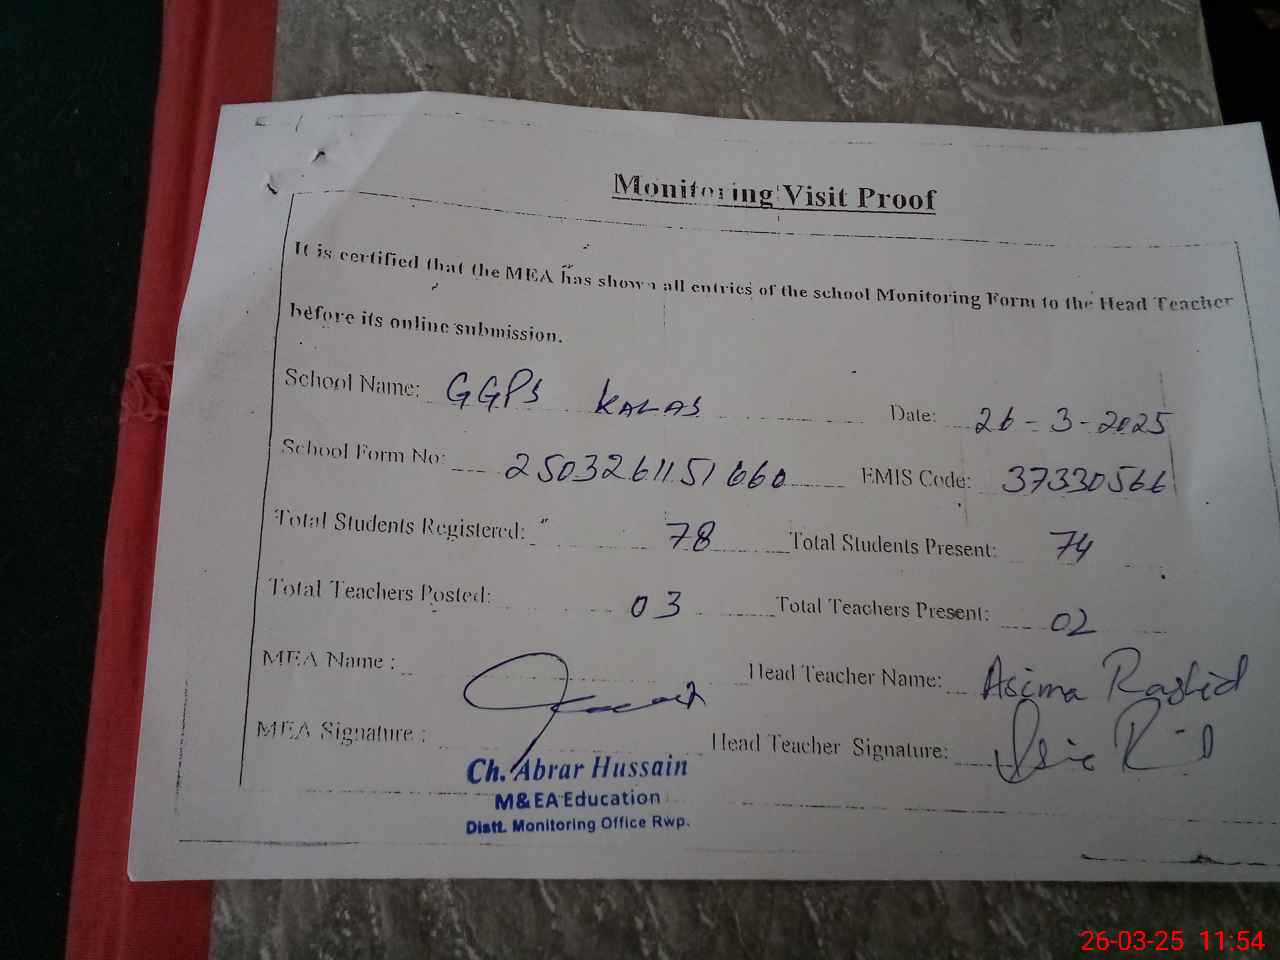 Monitoring Visit Proof
It is certified that the MEA has shown all entries of the school Monitoring Form to the Head Teacher
before its online submission.
School Name: GGPS KALAS Date: 26-3-2025
School Form No: 2503261151660 EMIS Code: 37330566
Total Students Registered: 78 Total Students Present: 74
Total Teachers Posted: 03 Total Teachers Present: 02
MEA Name: Head Teacher Name: Asima Rashid
MEA Signature: Head Teacher Signature:
Ch. Abrar Hussain
M&EA Education
Distt. Monitoring Office Rwp.
26-03-25 11:54